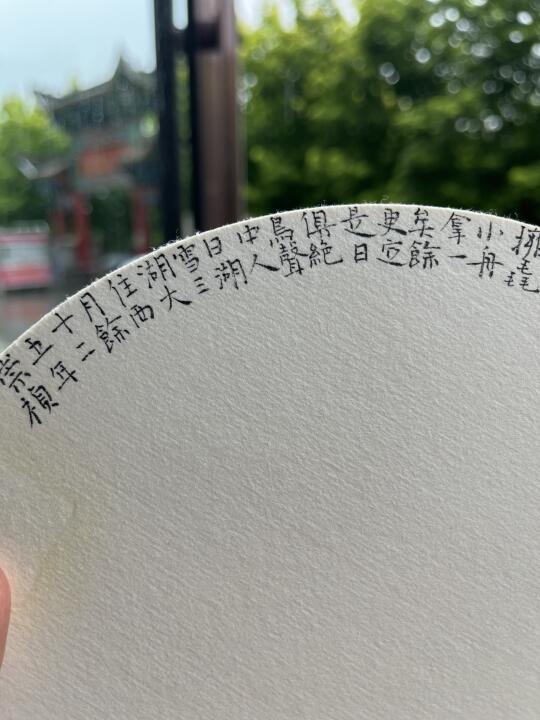 崇禎
五年
十二
月餘
住西
湖大
雪三
日湖
中人
鳥聲
俱絕
是日
更定
矣餘
拿一
小舟
擁毳